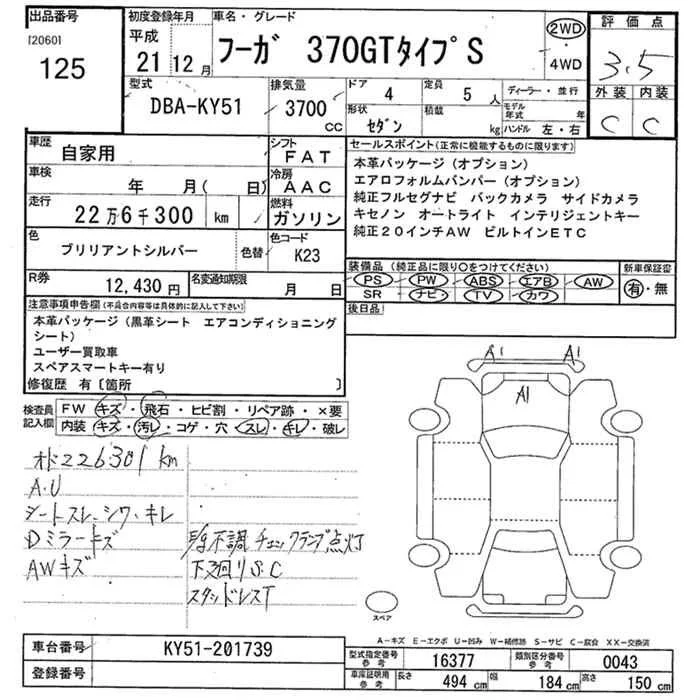 出品番号
[2060]
125
初度登録年月
平成
21 12月
車名・グレード
フーガ 370GTタイプS
2WD
・
4WD
評価点
3.5
外装 内装
C C
型式
DBA-KY51
排気量
3700
CC
ドア 4
定員 5 人
形状 セダン
積載 kg
ディーラー・並行
モデル年式 年
ハンドル 左・右
車歴 自家用
シフト FAT
車検 年 月( 日)
冷房 AAC
走行 22万6千300 km
燃料 ガソリン
色 ブリリアントシルバー
色替
色コード K23
R券 12,430円
名変通知期限 月 日
セールスポイント(正常に機能するものに限ります)
本革パッケージ(オプション)
エアロフォルムバンパー(オプション)
純正フルセグナビ バックカメラ サイドカメラ
キセノン オートライト インテリジェントキー
純正20インチAW ビルトインETC
装備品(純正品に限り○をつけてください)
PS PW ABS エアB AW
SR ナビ TV カワ
新車保証書
有・無
後日品
注意事項申告欄(不具合内容等は具体的に記入して下さい)
本革パッケージ(黒革シート エアコンディショニング
シート)
ユーザー買取車
スペアスマートキー有り
修復歴 有〔箇所 〕
検査員記入欄
FW キズ・飛石・ヒビ割・リペア跡・×要
内装 キズ・汚レ・コゲ・穴・スレ・キレ・破レ
オド226301km
A.U
シートスレ、シワ、キレ
Dミラーキズ
AWキズ
不調 チェックランプ点灯
下廻りS.C
スタッドレスT
A1 A1
A1
スペア
A-キズ E-エクボ U-凹み W-補修跡 S-サビ C-腐食 XX-交換済
車台番号 KY51-201739
登録番号
型式指定番号 参考 16377
類別区分番号 参考 0043
車庫証明用 参考
長さ 494cm
幅 184cm
高さ 150cm